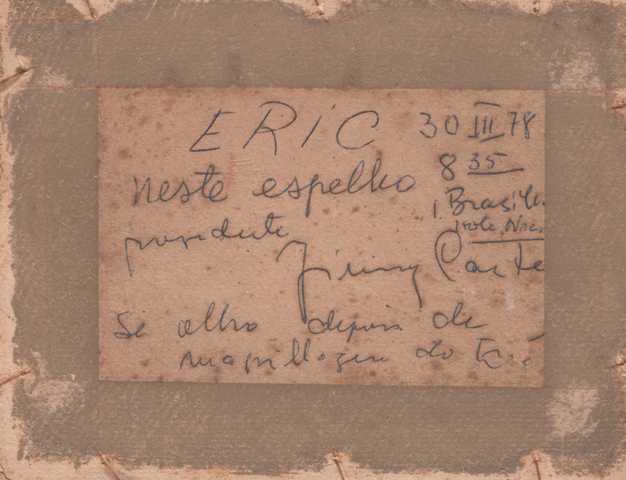 ERIC 30 III 78
8 35
neste espelho
1. Brasile.
presidente
Jimmy Carte
se olho depois de
maquillagem do